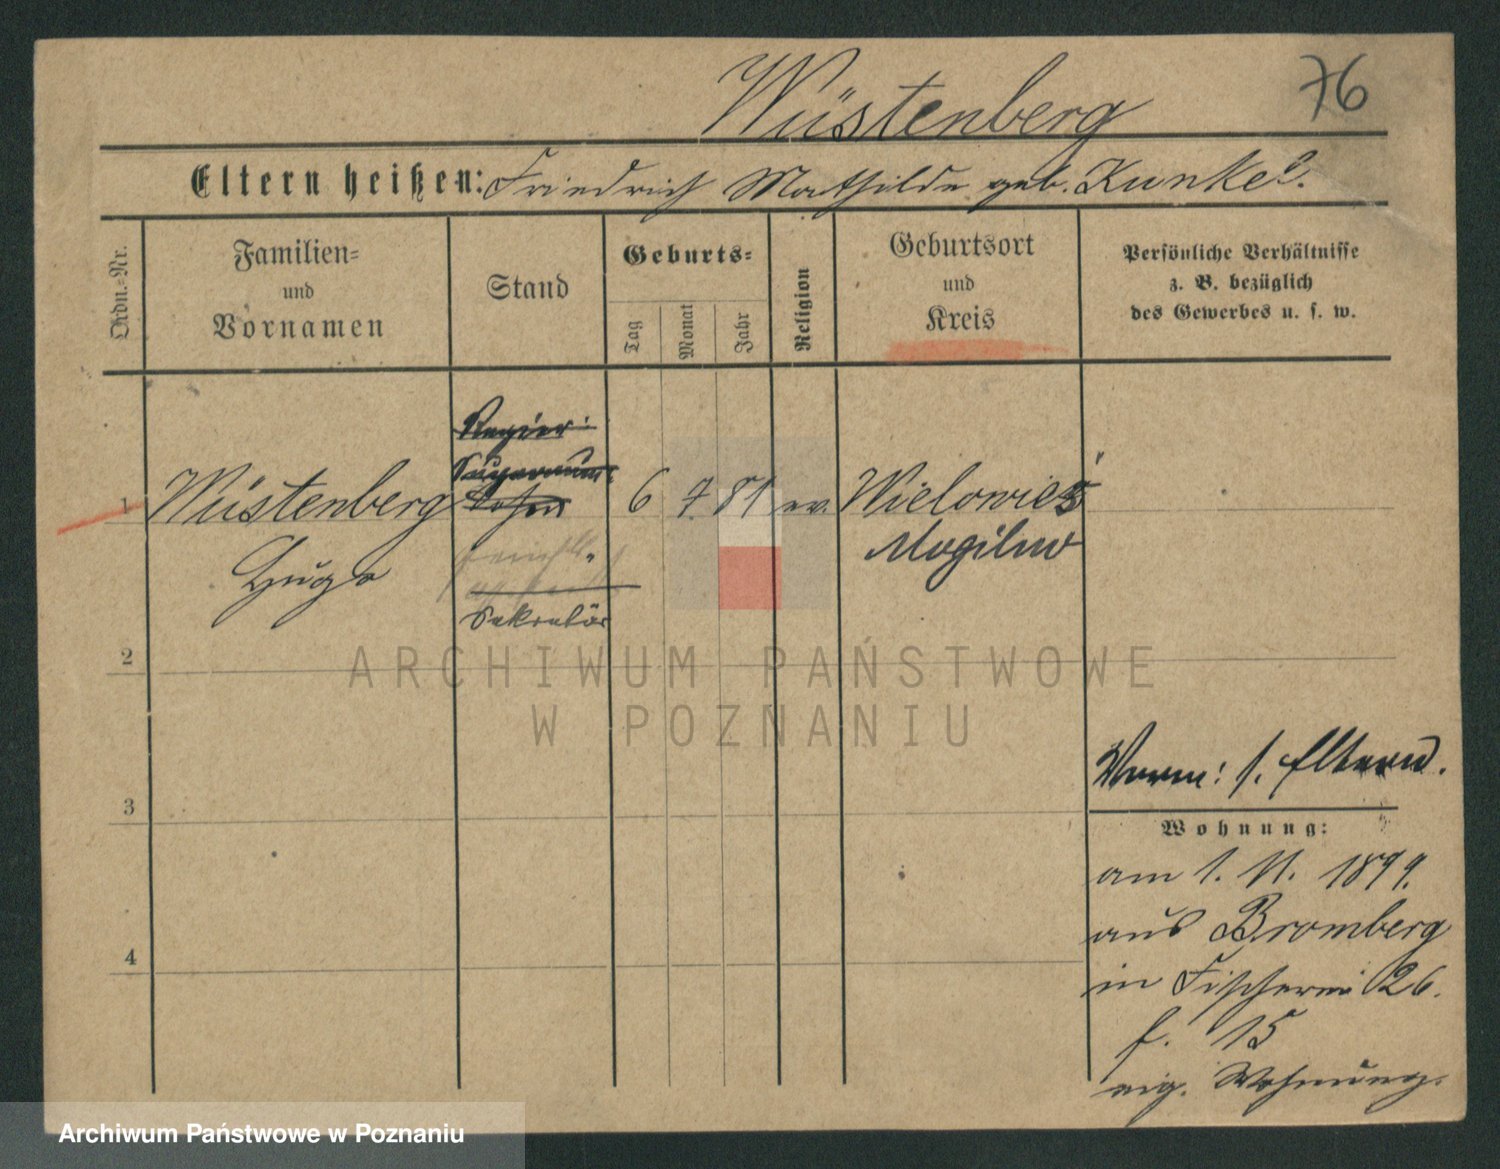 Wüstenberg
76
Eltern heißen: Friedrich Mathilde geb. Kunkel.
Ordn.=Nr.
Familien=
und
Vornamen
Stand
Geburts=
Tag
Monat
Jahr
Religion
Geburtsort
und
Kreis
Persönliche Verhältnisse
z. B. bezüglich
des Gewerbes u. s. w.
Regier:
Supernum:
1 Wüstenberg Sohn 6 7. 81 ev. Wielowies
Hugo
Mogilno
Sekretär
2
ARCHIWUM PAŃSTWOWE
W POZNANIU
3
4
Verm: s. Eltern.
Wohnung:
am 1. 11. 1899.
aus Bromberg
in Fischerei 26.
f. 15
eig. Wohnung.
Archiwum Państwowe w Poznaniu